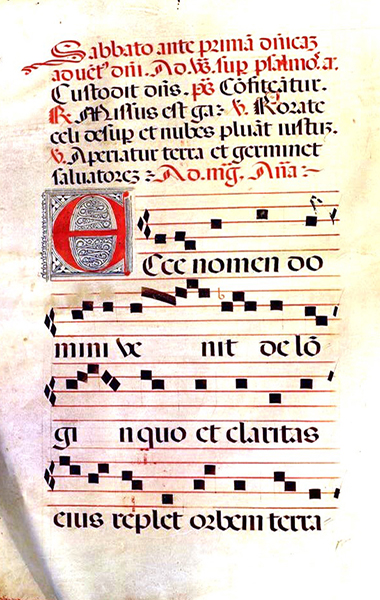 Sabbato ante primã dñicaʒ
aduẽt⁹ dñi. Ad. Ws. sup psalmo⁹. ã.
Custodit dñs. ps̃ Cõfiteãtur.
R. Missus est ga: v. Rorate
celi desup et nubes pluãt iustuʒ.
v. Aperiatur terra et germinet
saluatoreʒ : Ad. mg. Aña:
ECce nomen do
mini ve nit de lõ
gi nquo et claritas
eius replet orbem terra